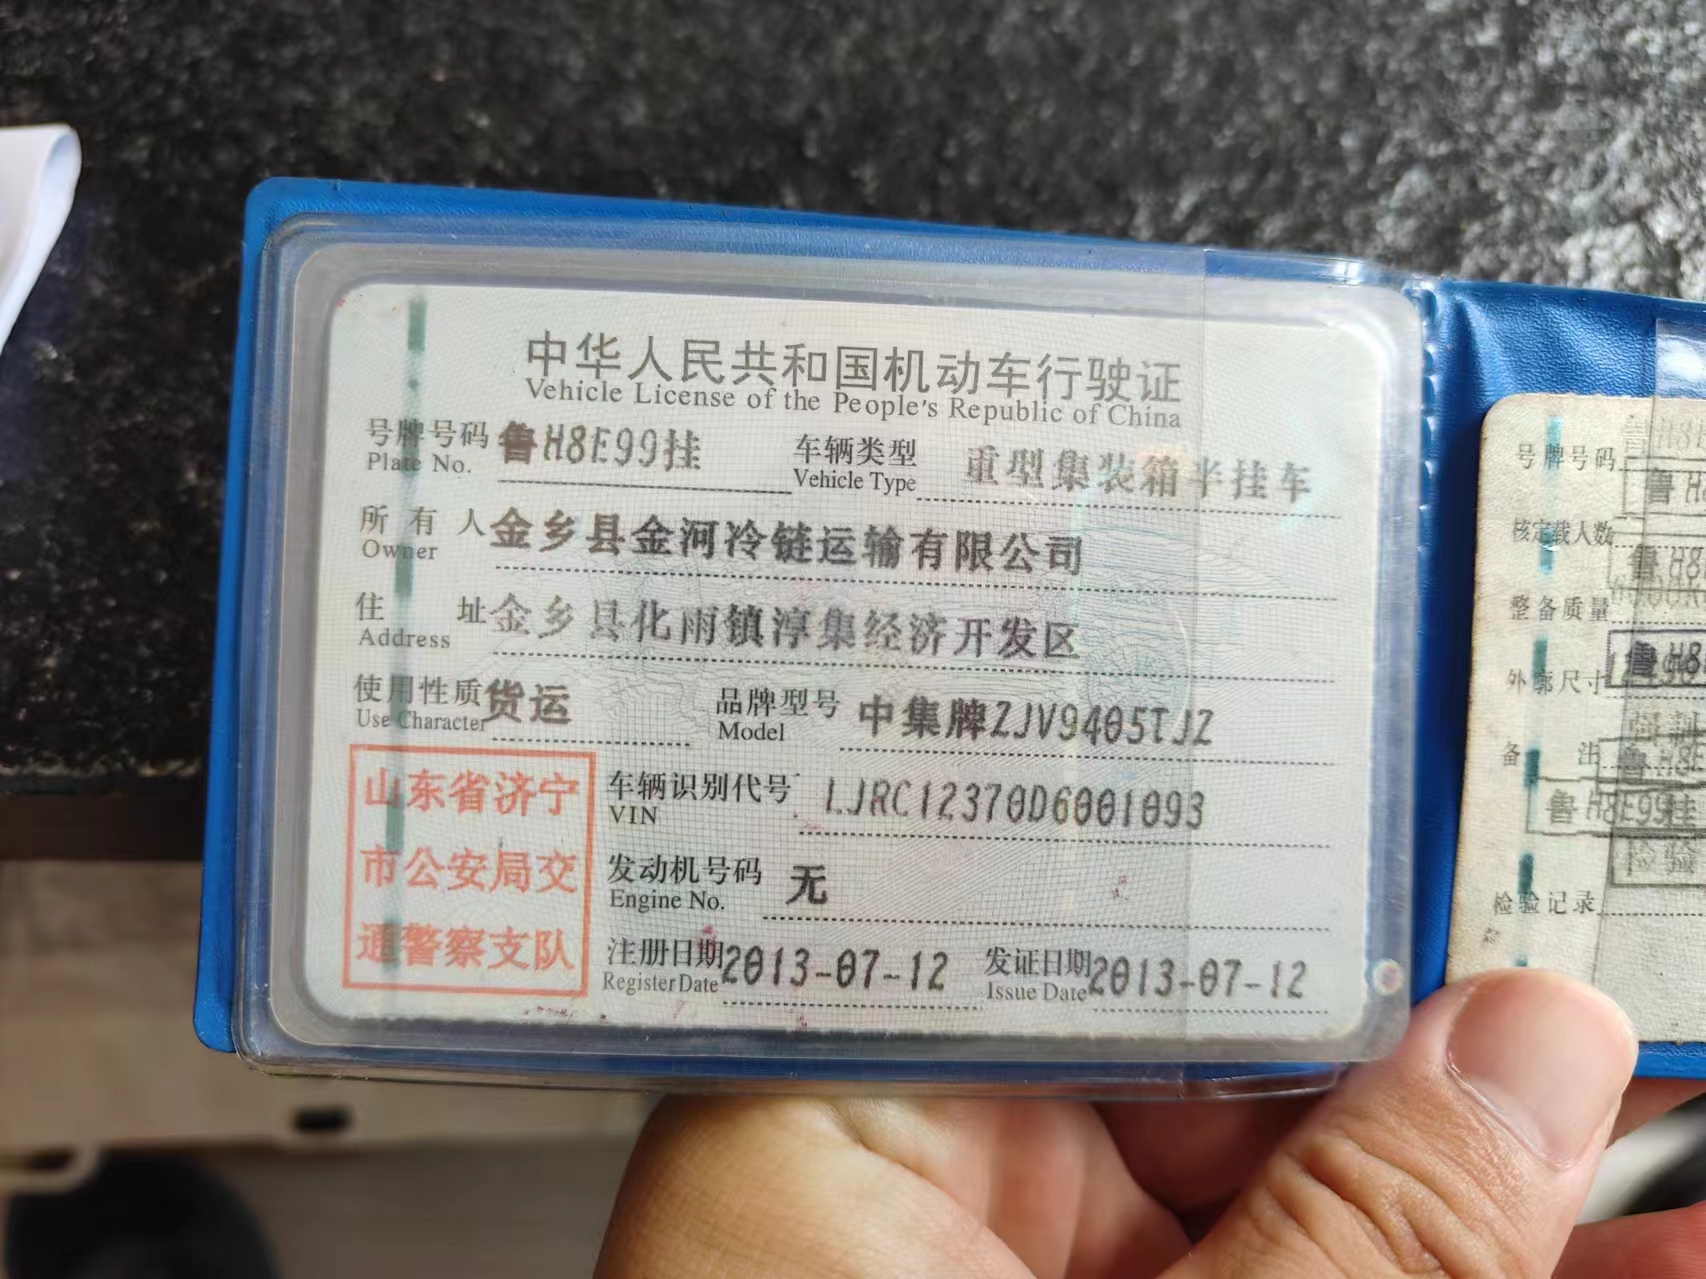 中华人民共和国机动车行驶证
Vehicle License of the People's Republic of China
号牌号码 鲁H8E99挂 车辆类型 重型集装箱半挂车
Plate No. Vehicle Type
所有人 金乡县金河冷链运输有限公司
Owner
住址 金乡县化雨镇淳集经济开发区
Address
使用性质 货运 品牌型号 中集牌ZJV9405TJZ
Use Character Model
山东省济宁
市公安局交
通警察支队
车辆识别代号 LJRC12370D6001093
VIN
发动机号码 无
Engine No.
注册日期 2013-07-12 发证日期 2013-07-12
Register Date Issue Date
号牌号码
核定载人数
整备质量
外廓尺寸
备注
鲁H8E99挂
检验
检验记录